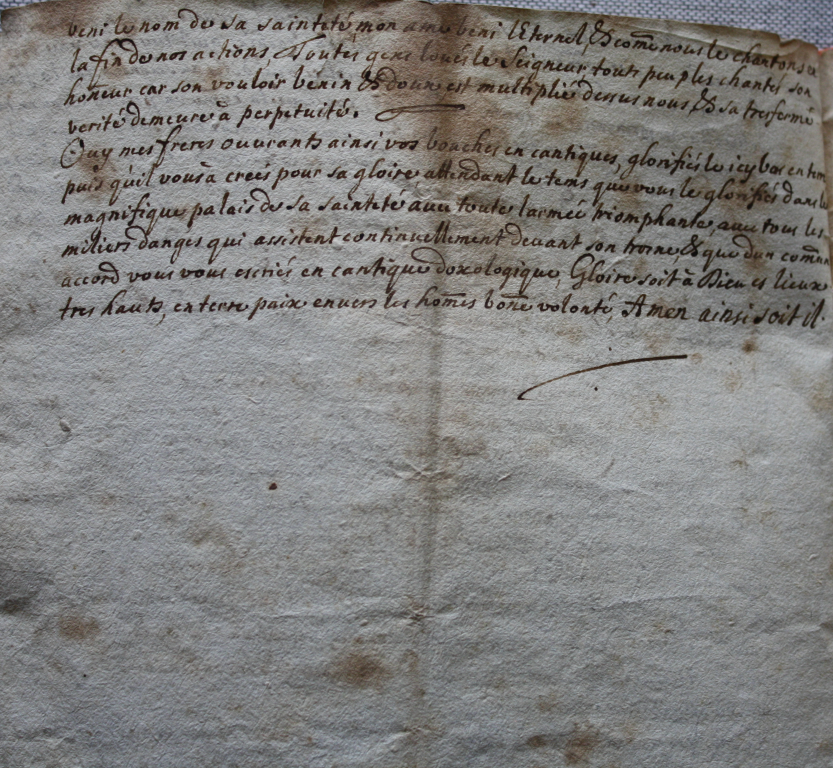 beni le nom de sa sainteté mon ame beni l'Eternel, & come nous le chantons a
la fin de nos actions, Toutes gens loués le Seigneur, touts peuples chantes son
honeur car son vouloir benin & doux est multiplié dessus nous, & sa tresfermé
verité demeure à perpetuité.
Ouy mes freres ouvrants ainsi vos bouches en cantiques, glorifiés le icy bas en tems
puis quil vous à creés pour sa gloire attendant le tems que vous le glorifiés dans le
magnifique palais de sa sainteté avec toute larmée triomphante, avec tous les
miliers danges qui assistent continuellement devant son trosne, & que dun comun
accord vous vous escriés en cantique doxologique, Gloire soit à Dieu es lieux
tres hauts, en terre paix envers les homes bone volonté, Amen ainsi soit il.